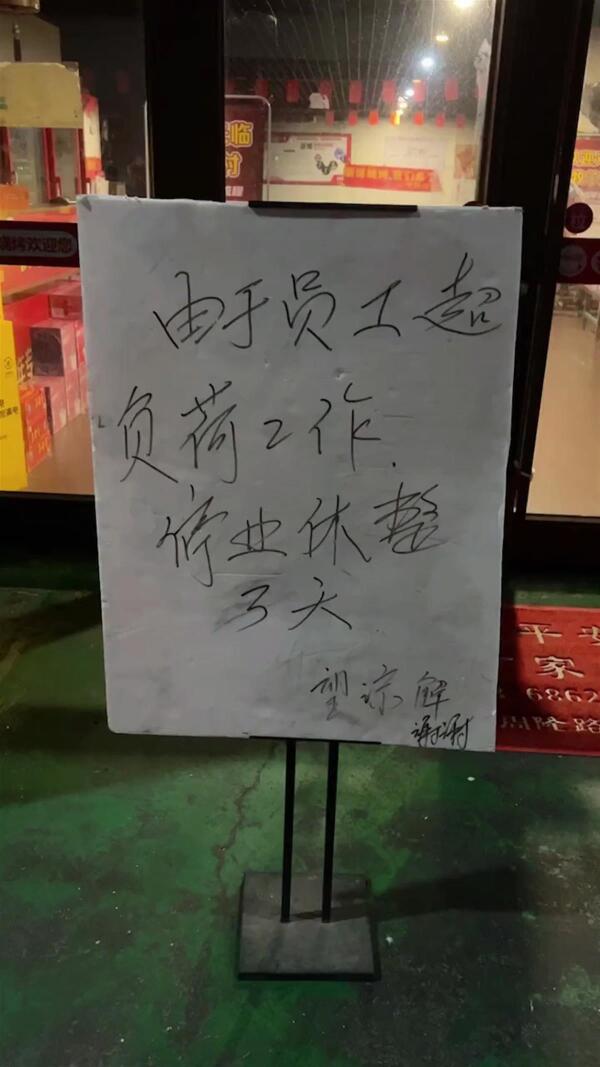 由于员工超
负荷工作.
停业休整
3天
望谅解
谢谢
烧烤欢迎您
平安
家
6862